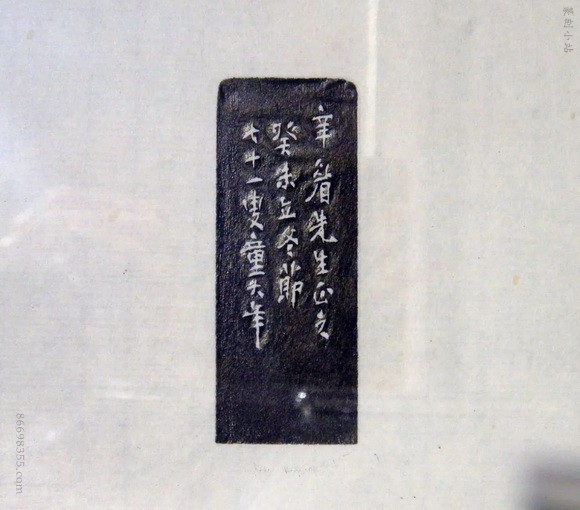 篆刻小站
辛眉先生正之
癸未立冬節
七十一叟童大年
86698355.com